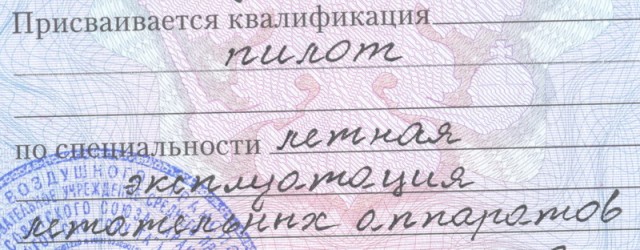 Присваивается квалификация
пилот
по специальности летная
эксплуатация
летательных аппаратов
ВОЗДУШНОГО